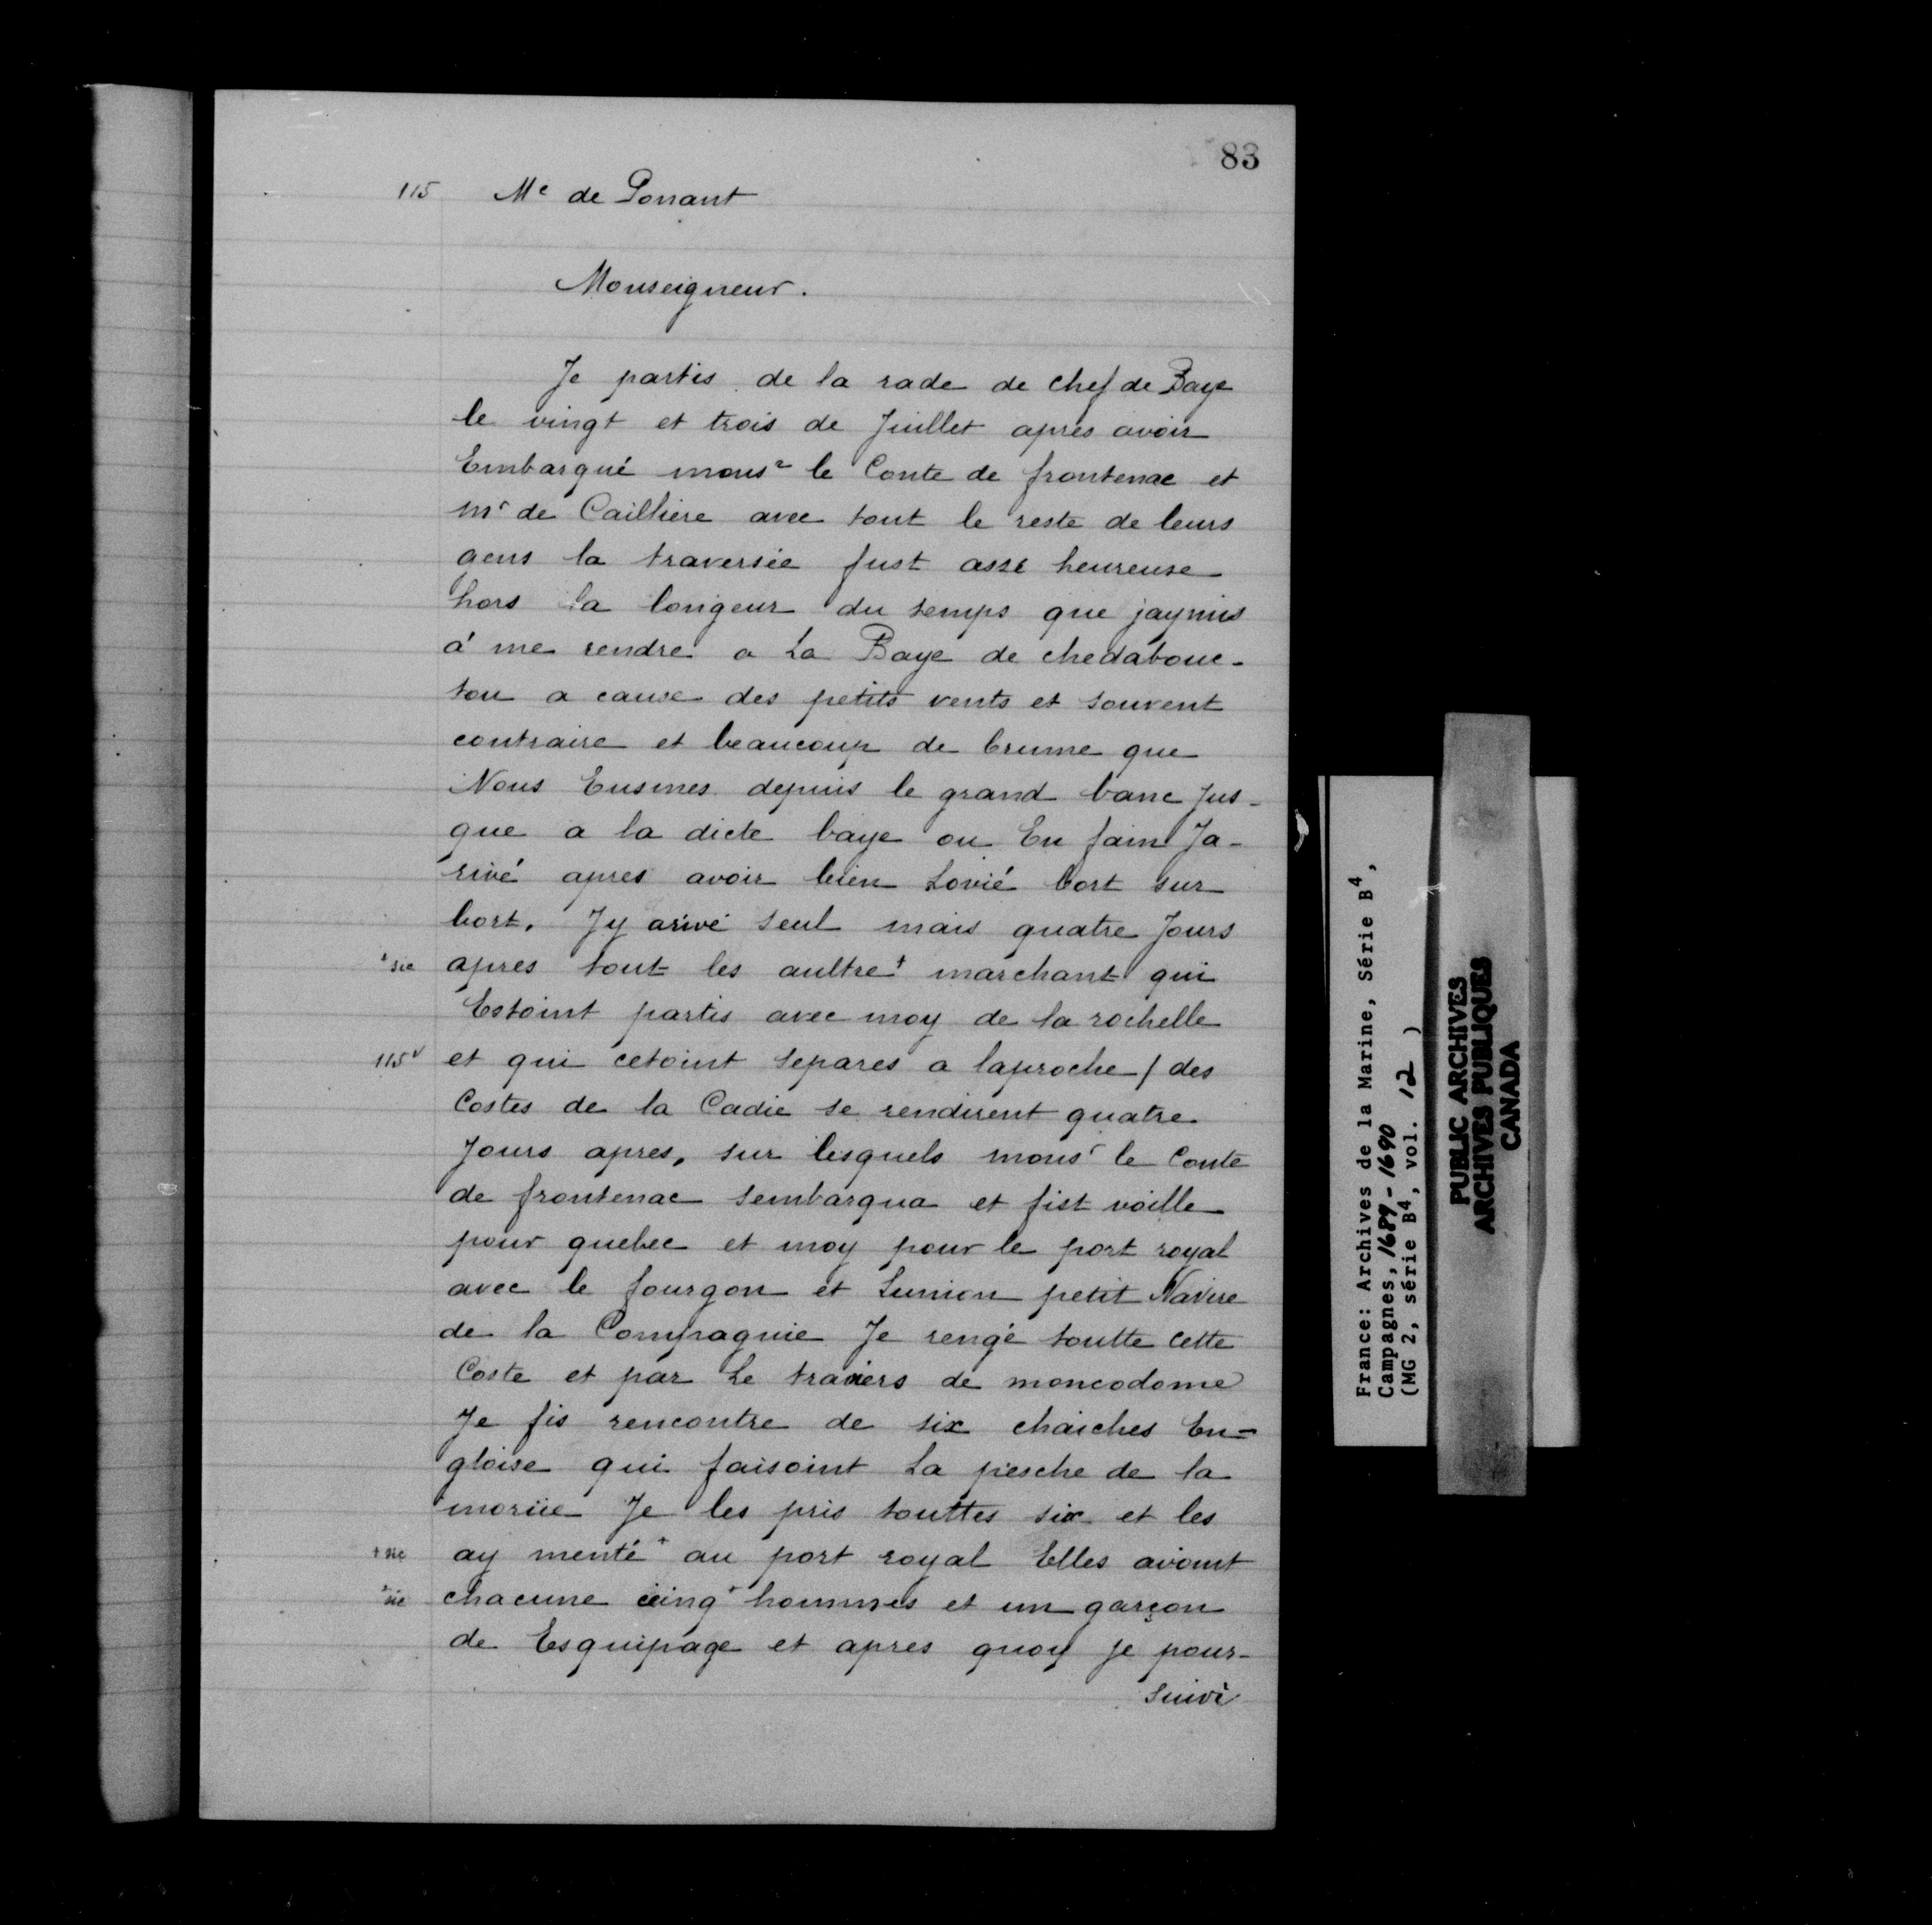 83
115 Me de Ponant
Monseigneur.
Je partis de la rade de chef de Baye
le vingt et trois de Juillet apres avoir
Embarqué monsr le Conte de frontenac et
mr de Cailliere avec tout le reste de leurs
gens la traversée fust asse heureuse
hors la longeur du temps que jaymis
á me rendre a La Baye de chedabouc-
tou a cause des petits vents et souvent
contraire et beaucoup de brume que
Nous Eusmes depuis le grand banc Jus-
que a la dicte baye ou En fain Ja-
rivé apres avoir bien Lovié bort sur
bort. Jy arivé seul mais quatre Jours
+sic apres tout les aultre+ marchant qui
Estoint partis avec moy de la rochelle
115v et qui cetoint separes a laproche / des
Costes de la Cadie se rendirent quatre
Jours apres, sur lesquels monsr le Conte
de frontenac sembarqua et fist voille
pour quebec et moy pour le port royal
avec le fourgon et Lunion petit Navire
de la Compagnie Je rengé toutte cette
Coste et par Le travers de moncodome
Je fis rencontre de six chaiches En=
gloise qui faisoint La pesche de la
moriie Je les pris touttes six et les
+sic ay menté+ au port royal Elles avoint
+sic chacune ciinq+ hommes et un garçon
de Esquipage et apres quoy Je pour-
suivé
France: Archives de la Marine, Série B4,
Campagnes, 1689-1690
(MG 2, série B4, vol. 12 )
PUBLIC ARCHIVES
ARCHIVES PUBLIQUES
CANADA